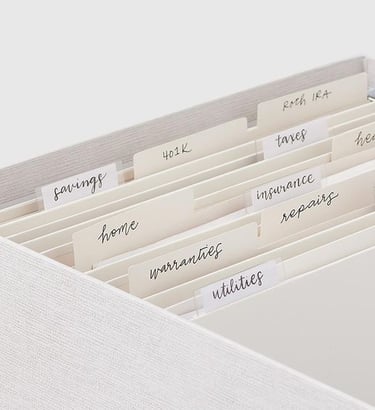 Roth IRA
401K
taxes
savings
insurance
home
repairs
warranties
utilities